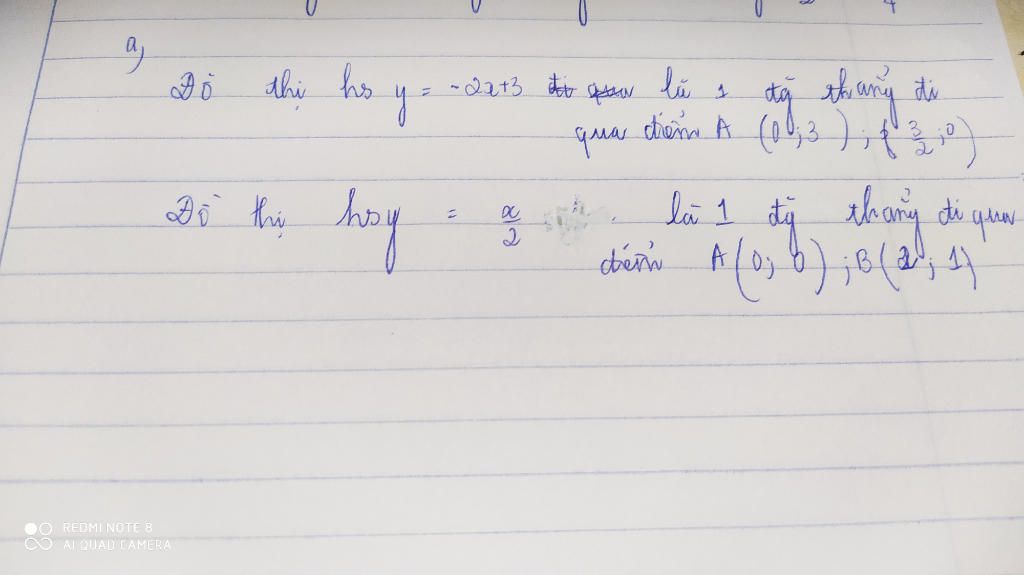 a,
Đồ thị hs y = -2x+3 đi qua là 1 đg̃ thẳng đi
qua điểm A (0;3); ( 3/2 ;0)
Đồ thị hs y = x/2 là 1 đg̃ thẳng đi qua
điểm A(0; 0); B(2; 1)
REDMI NOTE 8
AI QUAD CAMERA